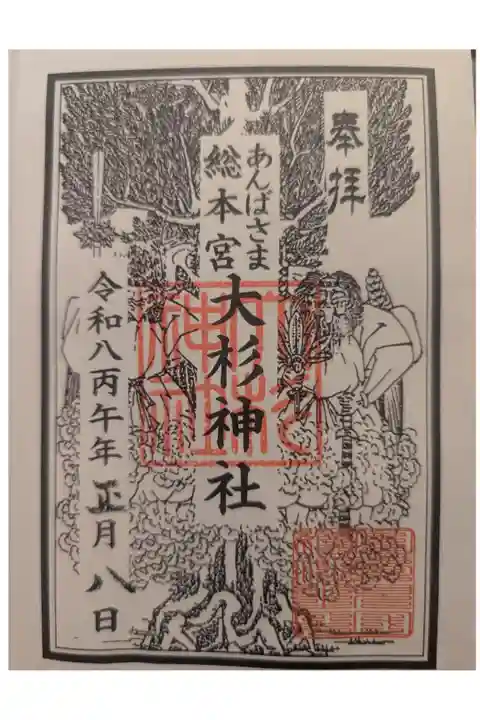 奉拝
あんばさま
総本宮
大杉神社
令和八丙午年正月八日
大杉神社